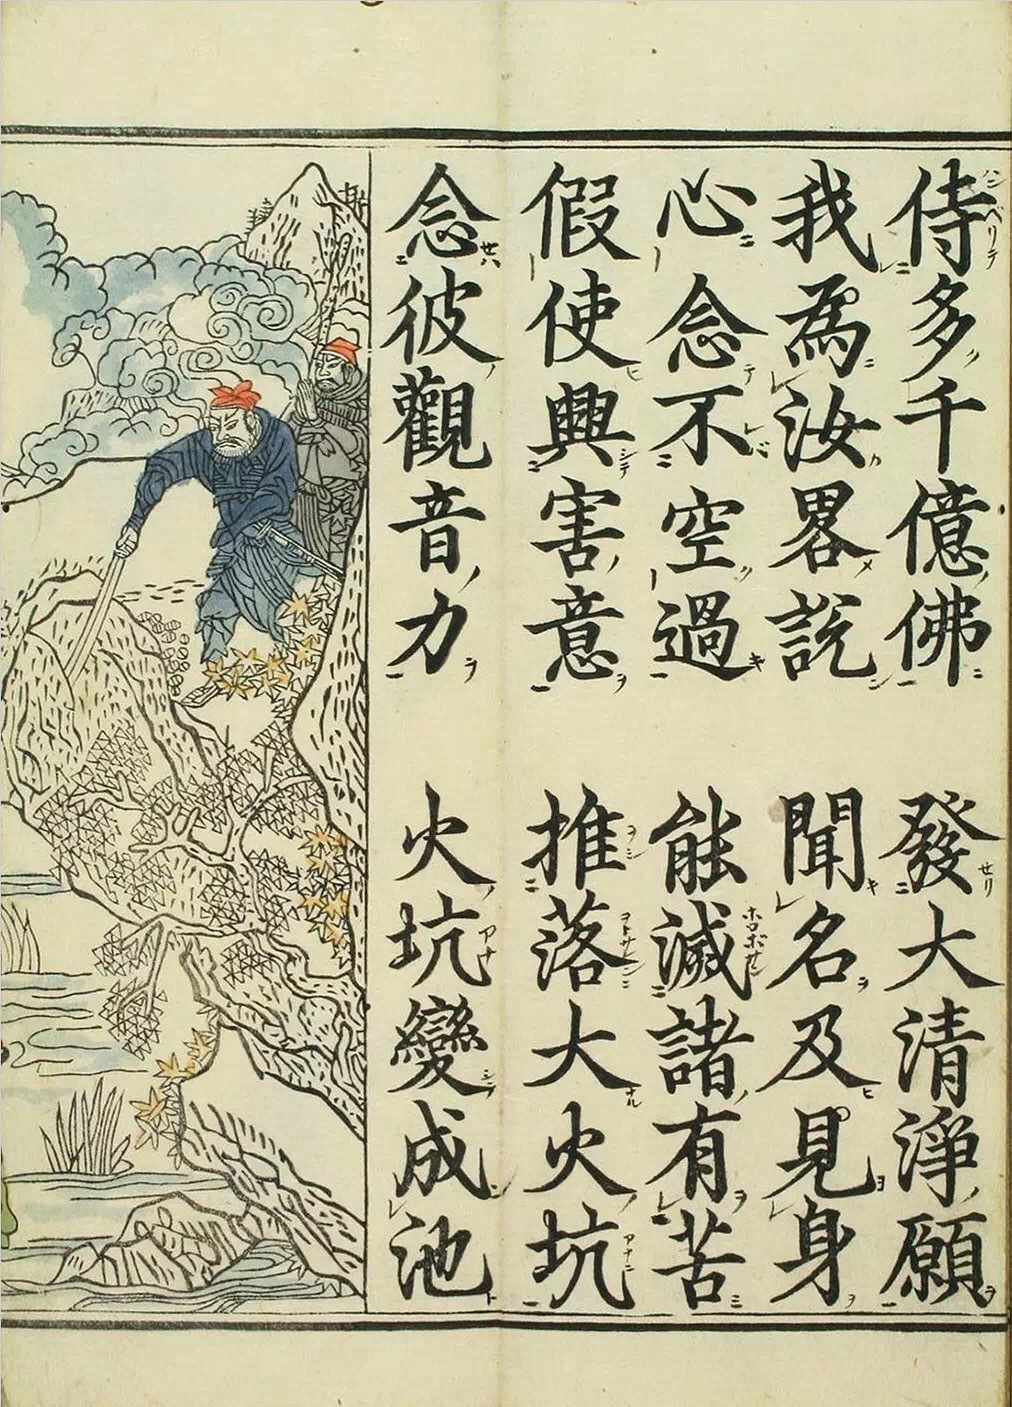 侍多千億佛 發大清淨願
我為汝畧説 聞名及見身
心念不空過 能滅諸有苦
假使興害意 推落大火坑
念彼觀音力 火坑變成池